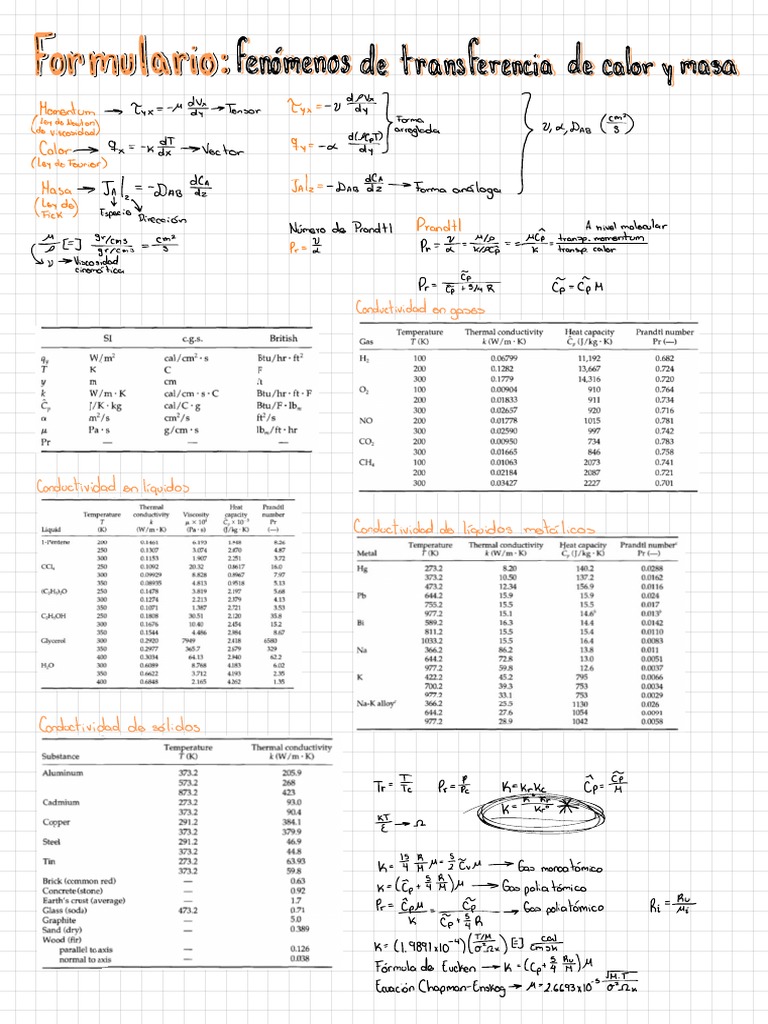 Formulario: fenómenos de transferencia de calor y masa
Momentum → τyx = -μ dVx/dy → Tensor
(Ley de Newton)
(de viscosidad)
Calor → qx = -k dT/dx → Vector
(Ley de Fourier)
Masa → JA|z = -DAB dCA/dz
(Ley de Fick)
Especie Dirección
μ/ρ [=] gr/cms / gr/cm3 = cm²/s
ν → Viscosidad cinemática
τyx = -ν dρVx/dy
qy = -α d(ρCpT)/dy
Forma arreglada
JA|z = -DAB dCA/dz → Forma análoga
ν, α, DAB (cm²/s)
Número de Prandtl
Pr = ν/α
Prandtl
Pr = ν/α = μ/ρ / k/ρCp = μĈp/k = transp. momentum / transp. calor
A nivel molecular
Pr = C̃p / C̃p + 5/4 R
C̃p = Ĉp M
SI c.g.s. British
qy W/m² cal/cm² · s Btu/hr · ft²
T K C F
y m cm ft
k W/m · K cal/cm · s · C Btu/hr · ft · F
Ĉp J/K · kg cal/C · g Btu/F · lbm
α m²/s cm²/s ft²/s
μ Pa · s g/cm · s lbm/ft · hr
Pr — — —
Conductividad en gases
Gas Temperature T (K) Thermal conductivity k (W/m · K) Heat capacity Ĉp (J/kg · K) Prandtl number Pr (—)
H2 100 0.06799 11,192 0.682
200 0.1282 13,667 0.724
300 0.1779 14,316 0.720
O2 100 0.00904 910 0.764
200 0.01833 911 0.734
300 0.02657 920 0.716
NO 200 0.01778 1015 0.781
300 0.02590 997 0.742
CO2 200 0.00950 734 0.783
300 0.01665 846 0.758
CH4 100 0.01063 2073 0.741
200 0.02184 2087 0.721
300 0.03427 2227 0.701
Conductividad en líquidos
Liquid Temperature T (K) Thermal conductivity k (W/m · K) Viscosity μ × 10⁴ (Pa · s) Heat capacity Ĉp × 10⁻³ (J/kg · K) Prandtl number Pr (—)
1-Pentene 200 0.1461 6.193 1.948 8.26
250 0.1307 3.074 2.070 4.87
300 0.1153 1.907 2.251 3.72
CCl4 250 0.1092 20.32 0.8617 16.0
300 0.09929 8.828 0.8967 7.97
350 0.08935 4.813 0.9518 5.13
(C2H5)2O 250 0.1478 3.819 2.197 5.68
300 0.1274 2.213 2.379 4.13
350 0.1071 1.387 2.721 3.53
C2H5OH 250 0.1808 30.51 2.120 35.8
300 0.1676 10.40 2.454 15.2
350 0.1544 4.486 2.984 8.67
Glycerol 300 0.2920 7949 2.418 6580
350 0.2977 365.7 2.679 329
400 0.3034 64.13 2.940 62.2
H2O 300 0.6089 8.768 4.183 6.02
350 0.6622 3.712 4.193 2.35
400 0.6848 2.165 4.262 1.35
Conductividad de líquidos metálicos
Metal Temperature T (K) Thermal conductivity k (W/m · K) Heat capacity Ĉp (J/kg · K) Prandtl numberᶜ Pr (—)
Hg 273.2 8.20 140.2 0.0288
373.2 10.50 137.2 0.0162
473.2 12.34 156.9 0.0116
Pb 644.2 15.9 15.9 0.024
755.2 15.5 15.5 0.017
977.2 15.1 14.6ᵇ 0.013ᵇ
Bi 589.2 16.3 14.4 0.0142
811.2 15.5 15.4 0.0110
1033.2 15.5 16.4 0.0083
Na 366.2 86.2 13.8 0.011
644.2 72.8 13.0 0.0051
977.2 59.8 12.6 0.0037
K 422.2 45.2 795 0.0066
700.2 39.3 753 0.0034
977.2 33.1 753 0.0029
Na-K alloyᶜ 366.2 25.5 1130 0.026
644.2 27.6 1054 0.0091
977.2 28.9 1042 0.0058
Conductividad de sólidos
Substance Temperature T (K) Thermal conductivity k (W/m · K)
Aluminum 373.2 205.9
573.2 268
873.2 423
Cadmium 273.2 93.0
373.2 90.4
Copper 291.2 384.1
373.2 379.9
Steel 291.2 46.9
373.2 44.8
Tin 273.2 63.93
373.2 59.8
Brick (common red) — 0.63
Concrete (stone) — 0.92
Earth's crust (average) — 1.7
Glass (soda) 473.2 0.71
Graphite — 5.0
Sand (dry) — 0.389
Wood (fir)
parallel to axis — 0.126
normal to axis — 0.038
Tr = T/Tc Pr = P/Pc K = Kr Kc Ĉp = C̃p/M
KT/ε → Ω
K = 15/4 R/M μ = 5/2 Ĉv μ → Gas monoatómico
K = (Ĉp + 5/4 R/M) μ → Gas poliatómico
Pr = Ĉp μ / K = C̃p / C̃p + 5/4 R → Gas poliatómico
Ri = Ru/Mi
K = (1.9891x10⁻⁴) (√T/M / σ²Ωk) [=] cal/cmsk
Fórmula de Eucken → K = (Cp + 5/4 Ru/M) μ
Ecuación Chapman-Enskog → μ = 2.6693x10⁻⁵ √M.T / σ²Ωk